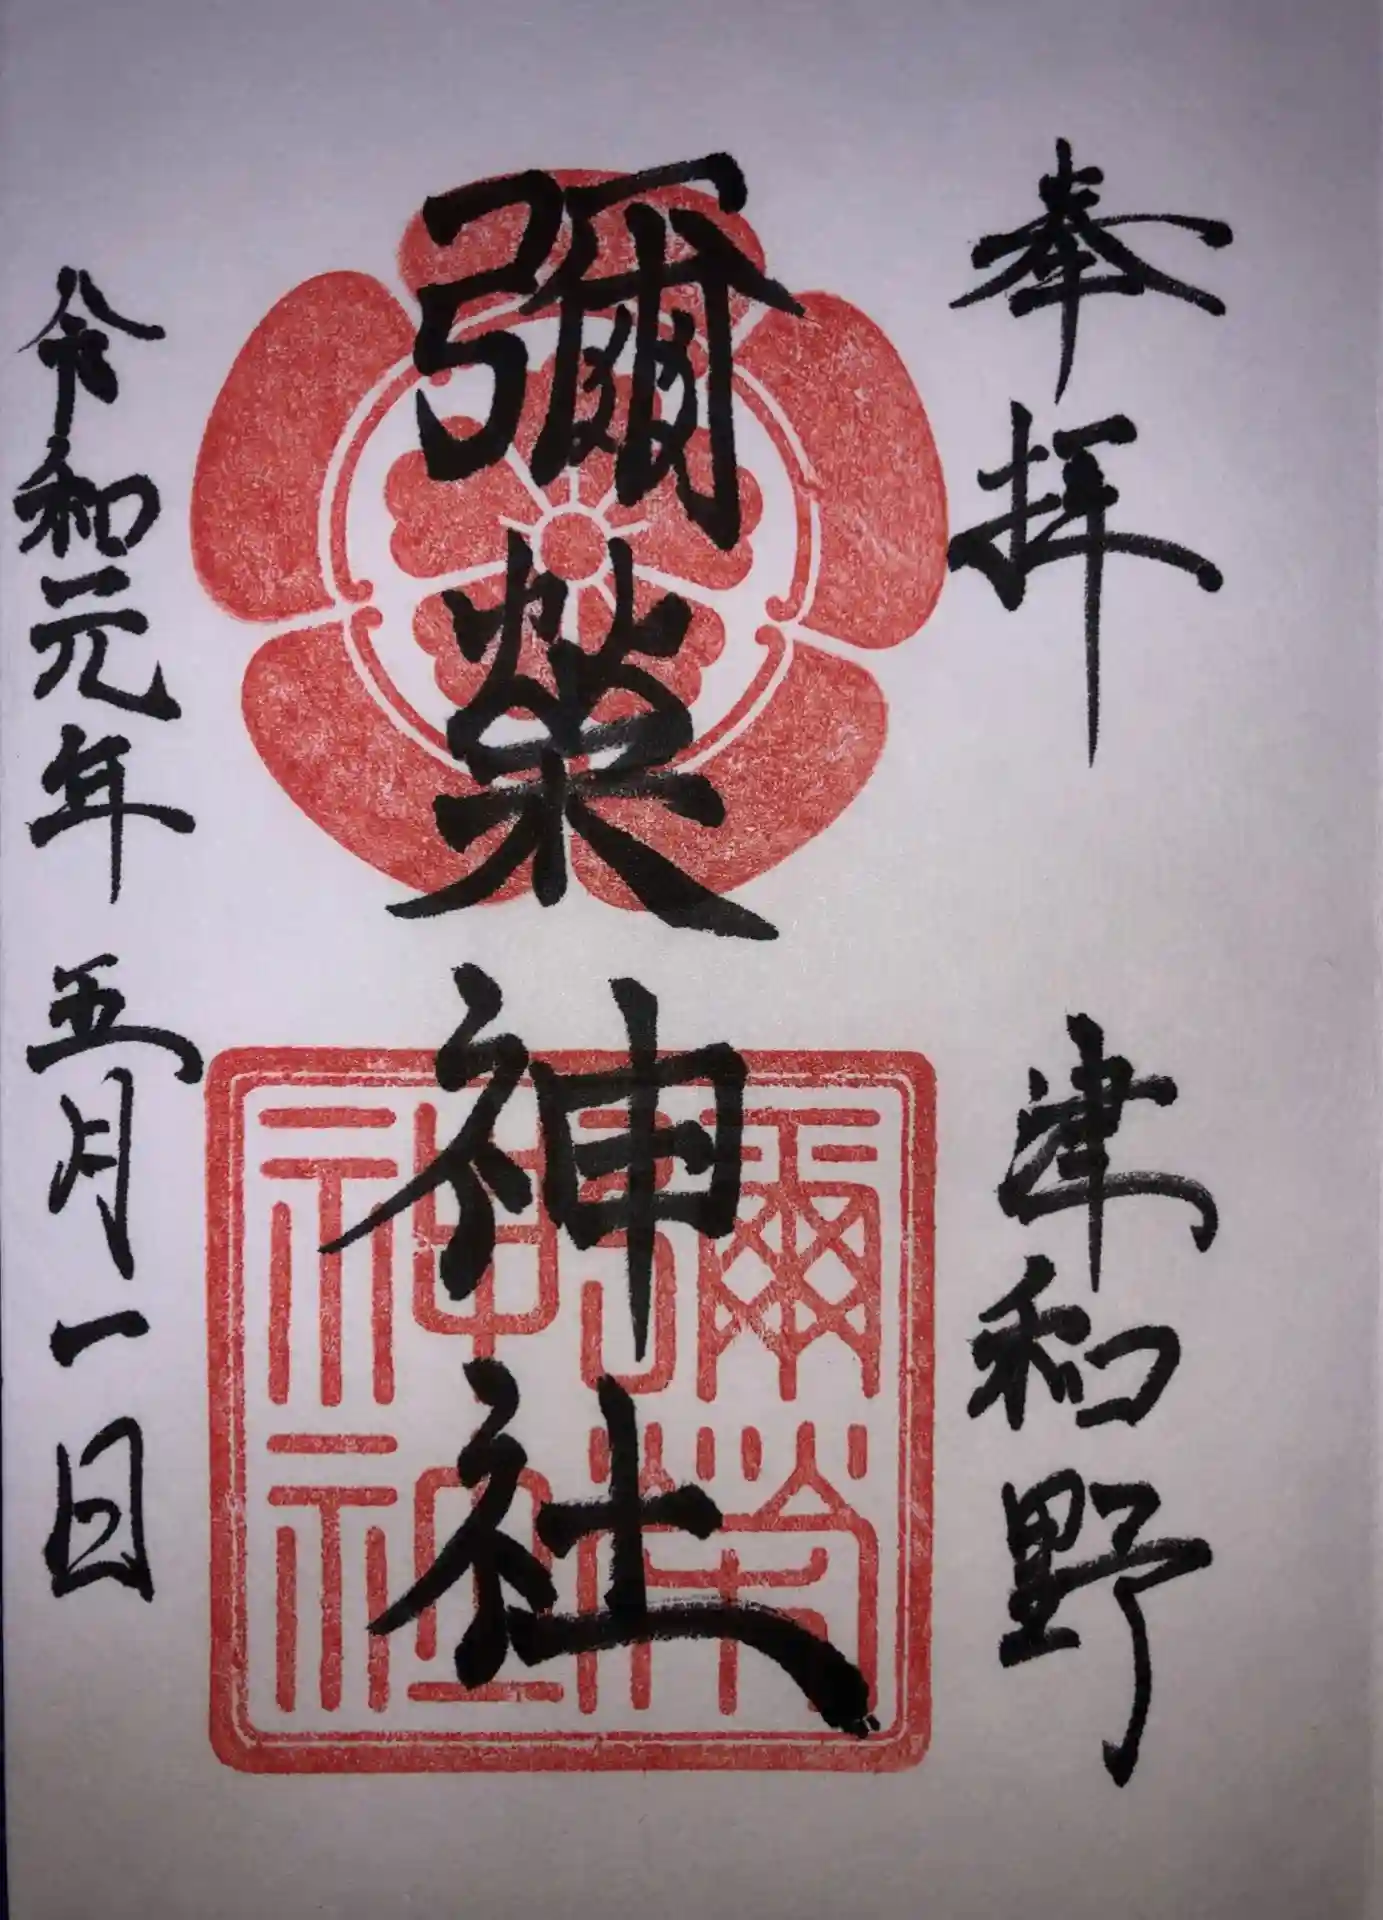 奉拝 津和野
彌榮神社
彌榮神社
令和元年 五月一日